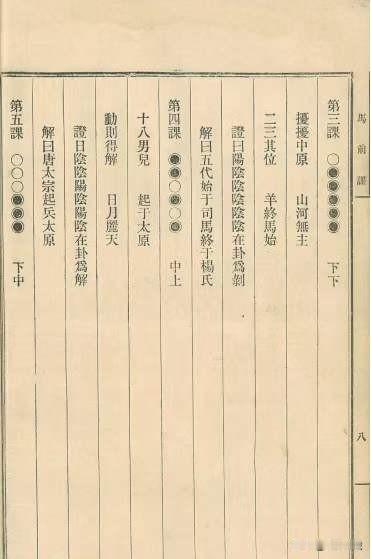 馬前課
八
第三課 ○●●●●● 下下
擾擾中原 山河無主
二三其位 羊終馬始
證曰陽陰陰陰陰陰在卦爲剝
解曰五代始于司馬終于楊氏
第四課 ●●○●○● 中上
十八男兒 起于太原
動則得解 日月麗天
證曰陰陰陽陰陽陰在卦爲解
解曰唐太宗起兵太原
第五課 ○○○●●● 下中